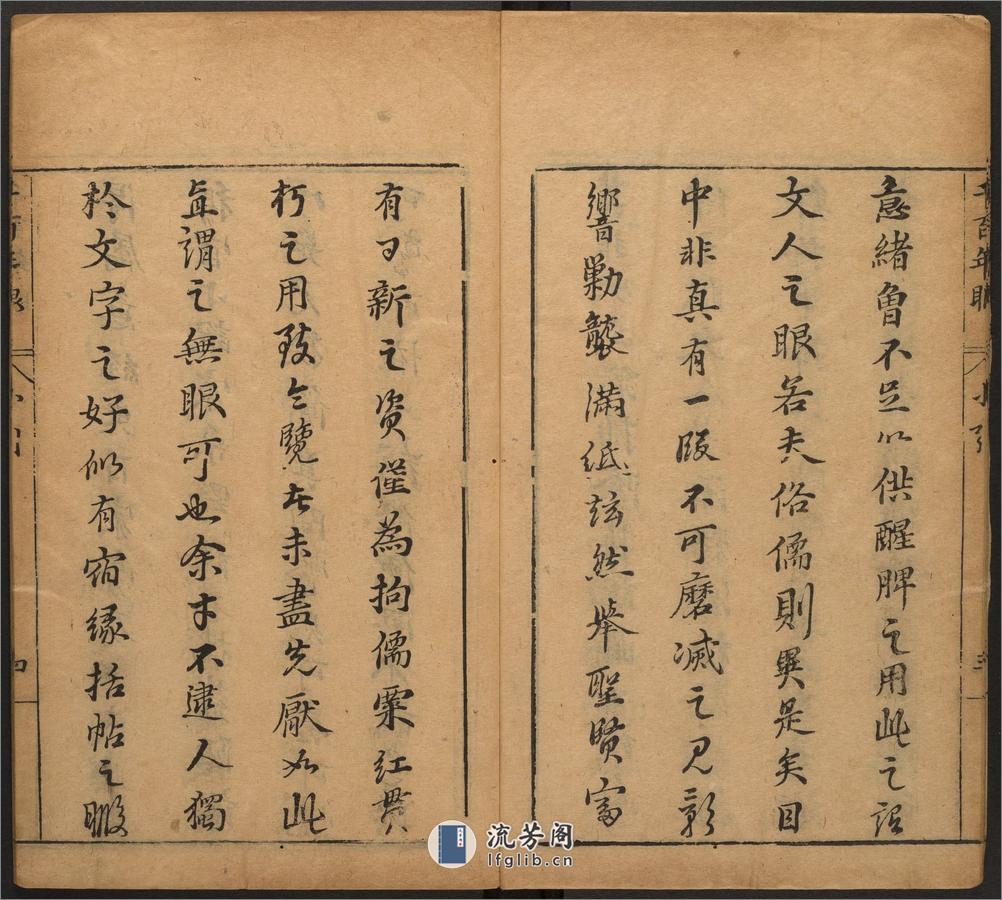 千百年眼 小引 三
意緒曾不足以供醒脾之用此之謂
文人之眼若夫俗儒則異是矣目
中非真有一段不可磨滅之見影
響勦襲滿紙炫然舉聖賢富
有日新之資僅為拘儒粟紅貫
朽之用致令覽者未盡先厭如此
直謂之無眼可也余才不逮人獨
於文字之好似有宿緣括帖之暇
千百年眼 小引 四
流芳阁
lfglib.cn